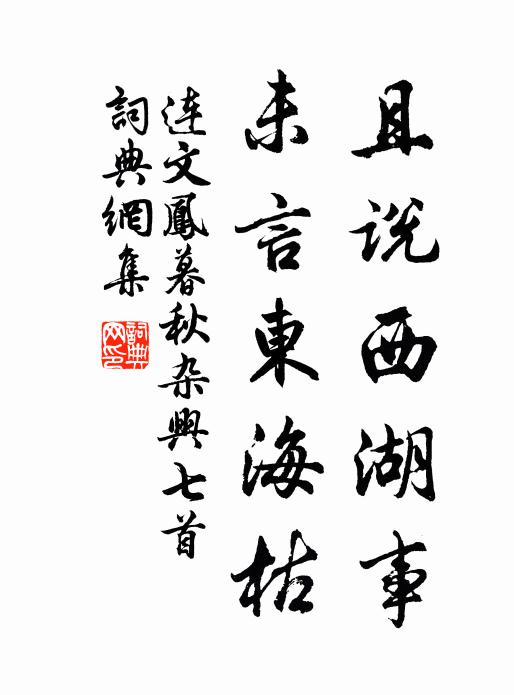 且說西湖事
未言東海枯
连文鳳暮秋杂興七首
詞典網集
詞典網印